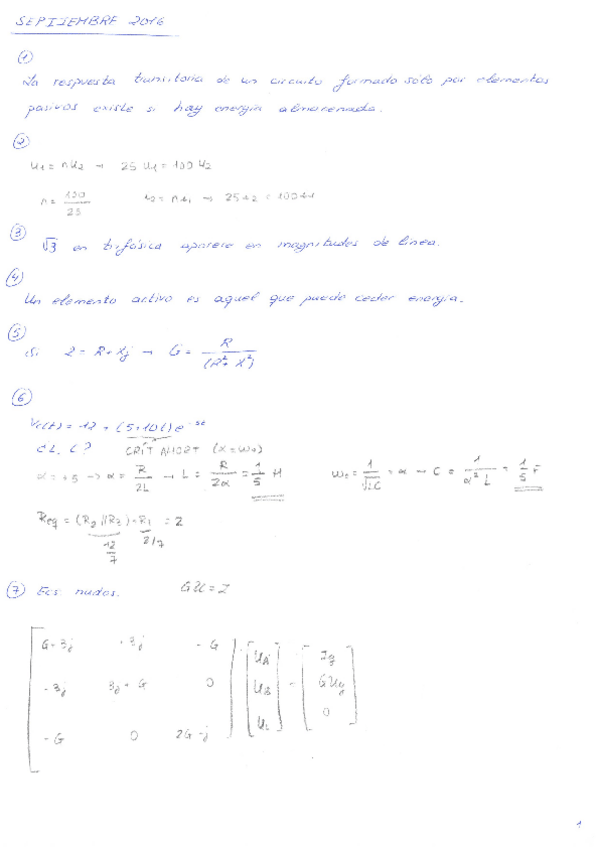 SEPTIEMBRE 2016
①
La respuesta transitoria de un circuito formado sólo por elementos
pasivos existe si hay energía almacenada.
②
u1 = n u2 → 25 u1 = 100 u2
n = 100/25 i2 = n i1 → 25 i2 = 100 i1
③
√3 en trifásica aparece en magnitudes de línea.
④
Un elemento activo es aquel que puede ceder energía.
⑤
Si Z = R + Xj → G = R/(R² + X²)
⑥
Vc(t) = 12 + (5+10t) e^-5t
¿L, C? CRÍT AMORT (α = ω0)
α = +5 → α = R/2L → L = R/2α = 1/5 H ω0 = 1/√LC = α → C = 1/(α² L) = 1/5 F
Req = (R2//R3) + R1 = 2
12/7 2/7
⑦ Ecs nudos. GU = I
G-3j +3j -G UA Ig
-3j 3j+G 0 UB GUg
-G 0 2G-j UC 0
1